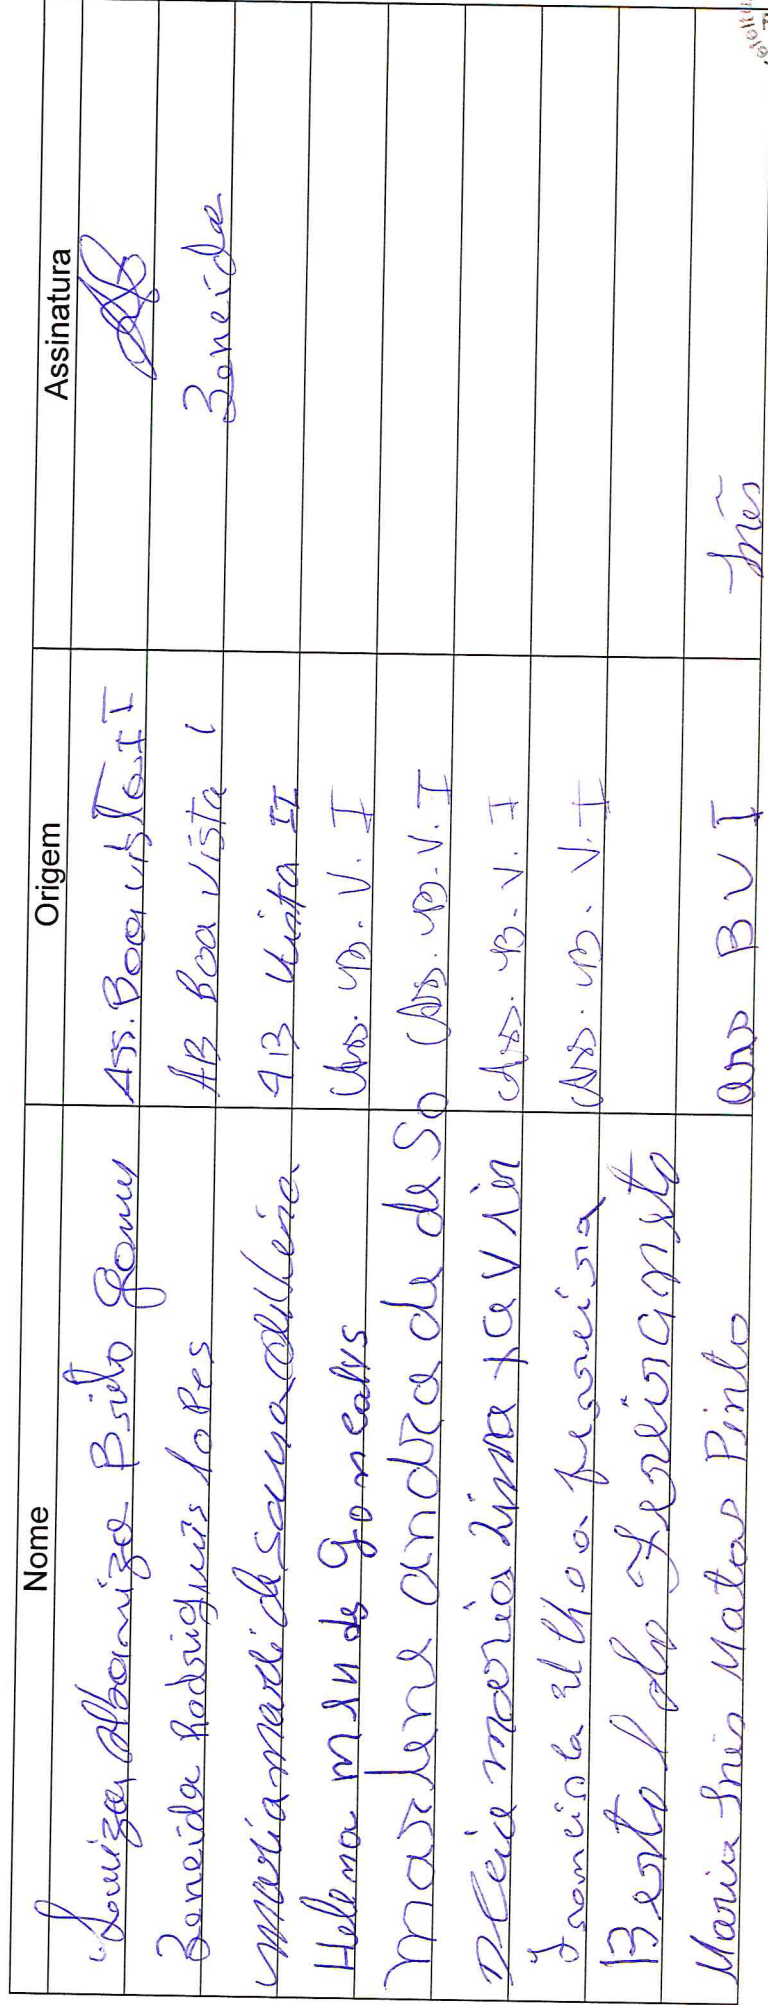 Nome Origem Assinatura
Luiza Albaniza Brito Gomes Ass. Boa vista II
Zeneida Rodrigues lopes AB Boa Vista I Zeneida
maria marli de sousa AB Vista II
Helena Mendes Goncalvs Ass. B. V. I
marlene andra de de So Ass. B. V. I
maria lima xavier Ass. B. V. I
Ass. B. V. I
Bertoldo
Maria Inês Matos Pinto ass B V I Inês